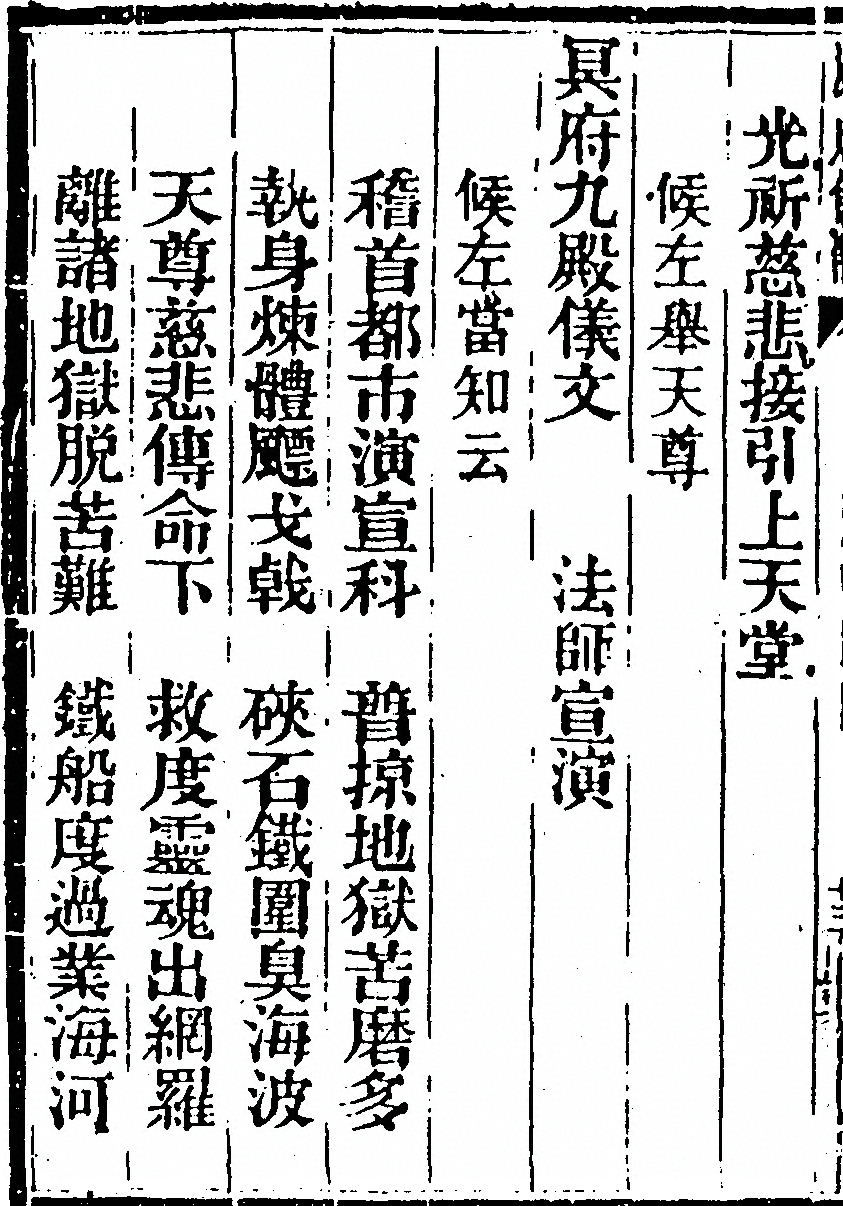 光祈慈悲接引上天堂
候左舉天尊
冥府九殿儀文 法師宣演
候左當知云
稽首都市演宣科 普掠地獄苦磨多
執身煉體飃戈戟 硤石鐵圍臭海波
天尊慈悲傳命下 救度靈魂出網羅
離諸地獄脱苦難 鐵船度過業海河